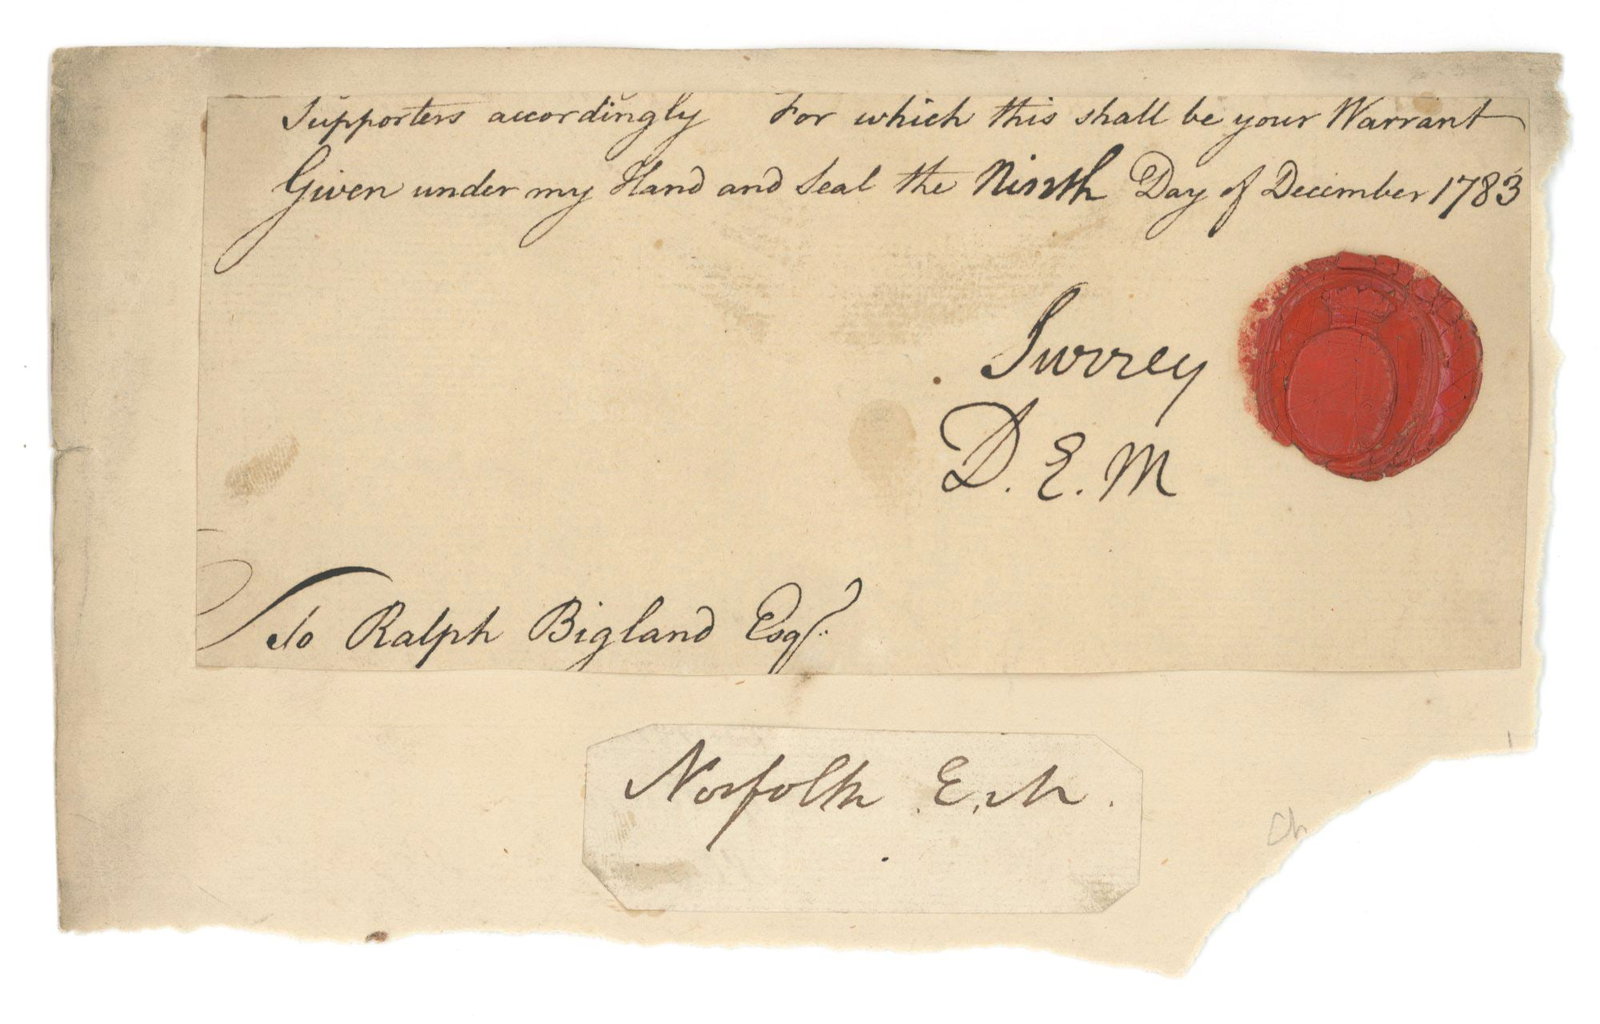 Supporters accordingly For which this shall be your Warrant
Given under my Hand and Seal the Ninth Day of December 1783
Surrey
D. E. M
To Ralph Bigland Esqr.
Norfolk E. M.
Ch